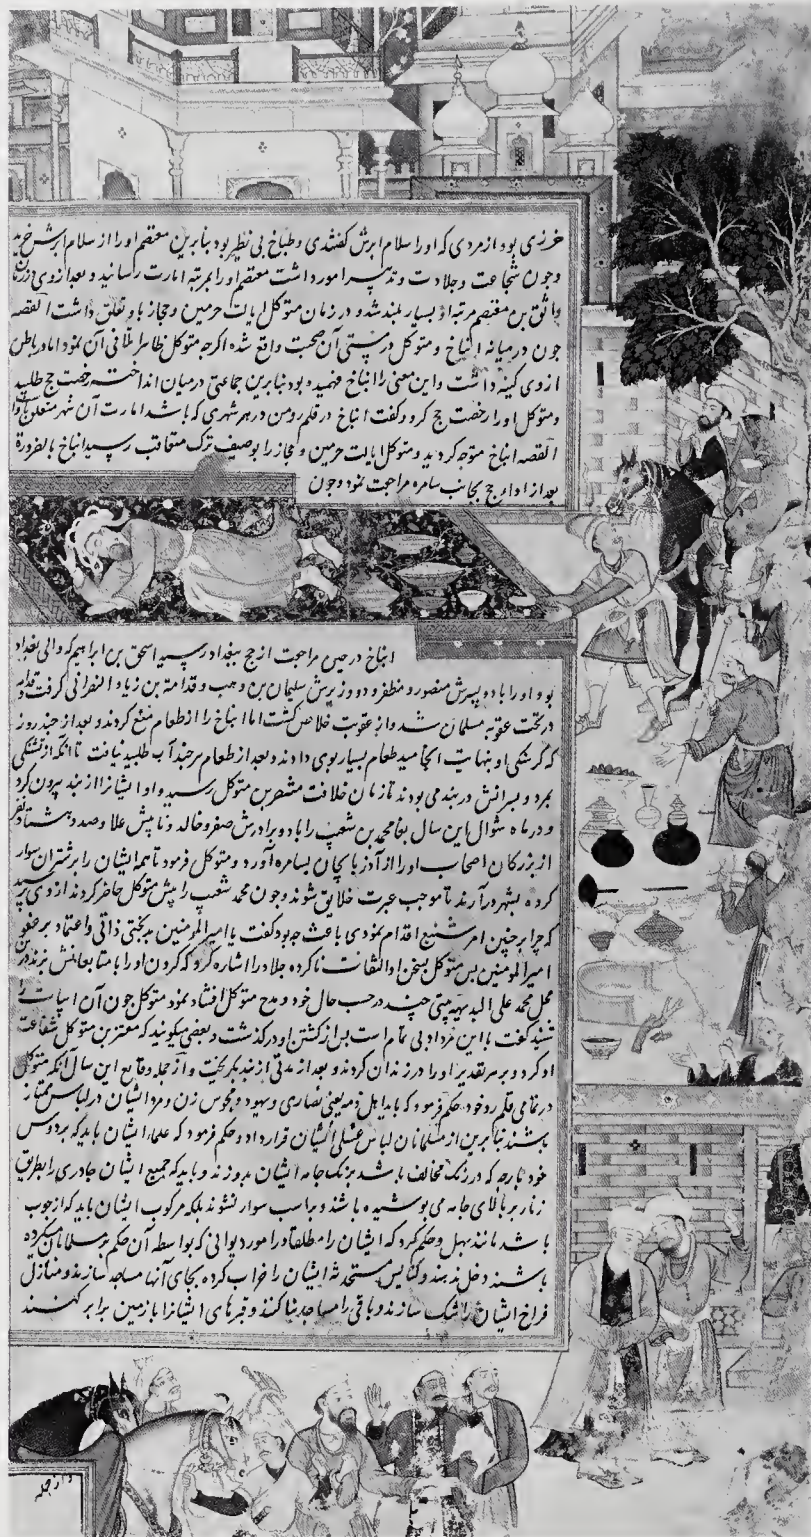 خزری بود از مردی که او را سلام ابرش گفتندی و طباخ بی نظیر بود بنابرین معتصم او را از سلام ابرش خرید
و چون شجاعت و جلادت و تدبیر امور داشت معتصم او را بمرتبه امارت رسانید و بعد از وی در زمان
واثق بن معتصم مرتبه او بسیار بلند شد و در زمان متوکل ایالت حرمین و حجاز باو تعلق داشت القصه
چون درمیانه ایتاخ و متوکل در مستی آن صحبت واقع شد اگرچه متوکل ظاهرا تلافی آن نمود اما در باطن
ازوی کینه داشت و این معنی را ایتاخ فهمیده بود بنابرین جماعتی درمیان انداخته رخصت حج طلبید
و متوکل او را رخصت حج کرد و گفت ایتاخ در قلمرو من در هر شهری که باشد امارت آن شهر متعلق باو
القصه ایتاخ متوجه گردید و متوکل ایالت حرمین و حجاز را بوصیف ترک متعاقب رسید ایتاخ بالضرورة
بعد از اداء حج بجانب سامره مراجعت نمود و چون
ایتاخ در حین مراجعت از حج ببغداد رسید اسحق بن ابراهیم که والی بغداد
بود او را با دو پسرش منصور و مظفر و دو وزیرش سلیمان بن وهب و قدامة بن زیاد النصرانی گرفت و قدامه
در تحت عقوبه مسلمان شد و از عقوبت خلاص گشت اما ایتاخ را از طعام منع کردند و بعد از چند روز
که گرسنگی او بنهایت انجامید طعام بسیار بوی دادند و بعد از طعام هرچند آب طلبید نیافت تا آنکه از تشنگی
بمرد و پسرانش در بند می بودند تا زمان خلافت منتصر بن متوکل رسید و او ایشانرا از بند بیرون کرد
و در ماه شوال این سال بغا محمد بن شعیب را با دو برادرش صقر و خالد و نایبش علا و صد و هشتاد نفر
از بزرگان اصحاب او را از آذربایجان بسامره آورد و متوکل فرمود تا همه ایشان را بر شتران سوار
کرده بشهر درآرند تا موجب عبرت خلایق شوند و چون محمد شعیب را پیش متوکل حاضر کردند ازوی پرسید
که چرا بر چنین امر شنیع اقدام نمودی باعث چه بود گفت یا امیر المومنین بدبختی ذاتی و اعتماد بر عفو
امیر المومنین پس متوکل بسخن او التفات ناکرده جلاد را اشاره کرد که گردن او را با متابعانش بزند در
محل محمد علی البدیهه بیتی چند در حسب حال خود و مدح متوکل انشاد نمود متوکل چون آن ابیات را
شنید گفت با این مرد ادبی تمام است پس از کشتن او درگذشت و بعضی میگویند که معتز بن متوکل شفاعت
او کرد و بر هر تقدیر او را در زندان کردند و بعد از مدتی از بند بگریخت و از جمله وقایع این سال آنکه متوکل
در تمامی قلمرو خود حکم فرمود که باید اهل ذمه یعنی نصاری و یهود و مجوس زن و مرد ایشان در لباس ممتاز
باشند بنابرین از مسلمانان لباس عسلی ایشان قرار داد و حکم فرمود که علما ایشان باید که بر دوس
خود پارچه که در رنگ مخالف باشد برنگ جامه ایشان بدوزند و باید که جمیع ایشان چادری را بطریق
زنار بر بالای جامه می پوشیده باشند و بر اسب سوار نشوند بلکه مرکوب ایشان باید که از چوب
باشد مانند بهل و حکم کرد که ایشان را مطلقا در امور دیوانی که بواسطه آن حکم بر مسلمانان میکرده
باشند دخل ندهند و کنایس مستحدثه ایشان را خراب کرده بجای آنها مساجد سازند و منازل
فراخ ایشان را تنک سازند و باقی را مساجد بنا کنند و قبرهای ایشانرا با زمین برابر کنند